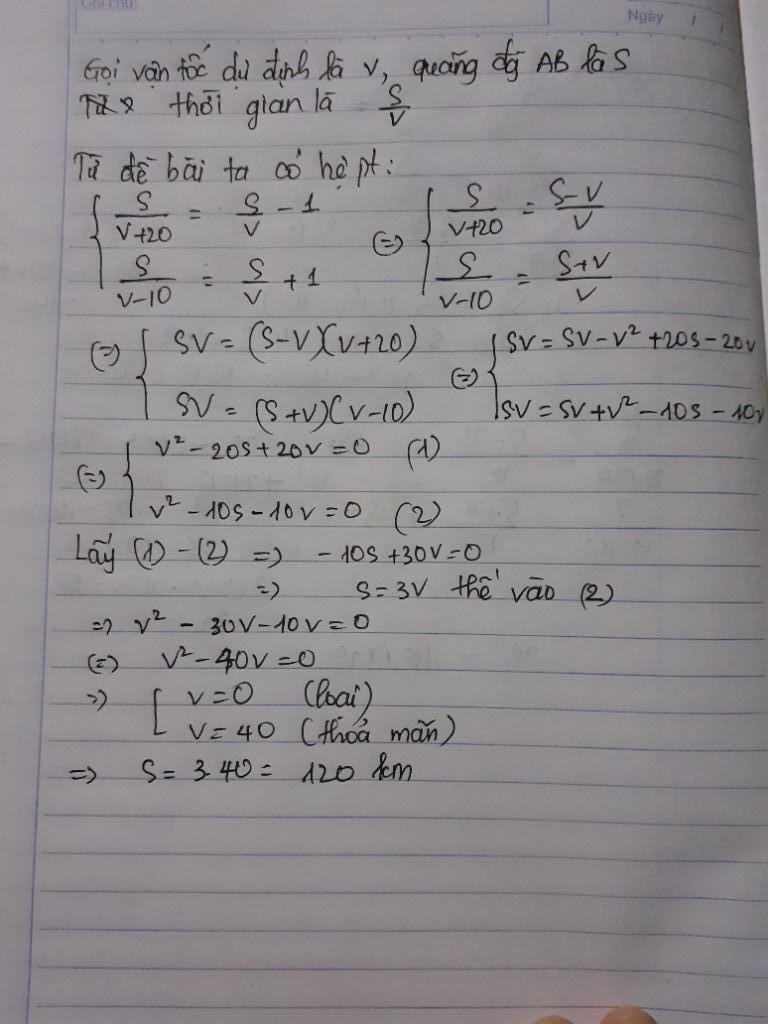 Ghi chú:
Ngày / /
Gọi vận tốc dự định là v, quãng đg AB là S
thời gian là S/v
Từ đề bài ta có hệ pt:
{ S/(v+20) = S/v - 1 (=) { S/(v+20) = (S-v)/v
S/(v-10) = S/v + 1 S/(v-10) = (S+v)/v
(=) { SV = (S-V)(V+20) (=) { SV = SV - V² + 20S - 20V
SV = (S+V)(V-10) SV = SV + V² - 10S - 10V
(=) { V² - 20S + 20V = 0 (1)
V² - 10S - 10V = 0 (2)
Lấy (1) - (2) => - 10S + 30V = 0
=> S = 3V thế vào (2)
=> V² - 30V - 10V = 0
(=) V² - 40V = 0
=> [ V = 0 (loại)
V = 40 (thoả mãn)
=> S = 3.40 = 120 km